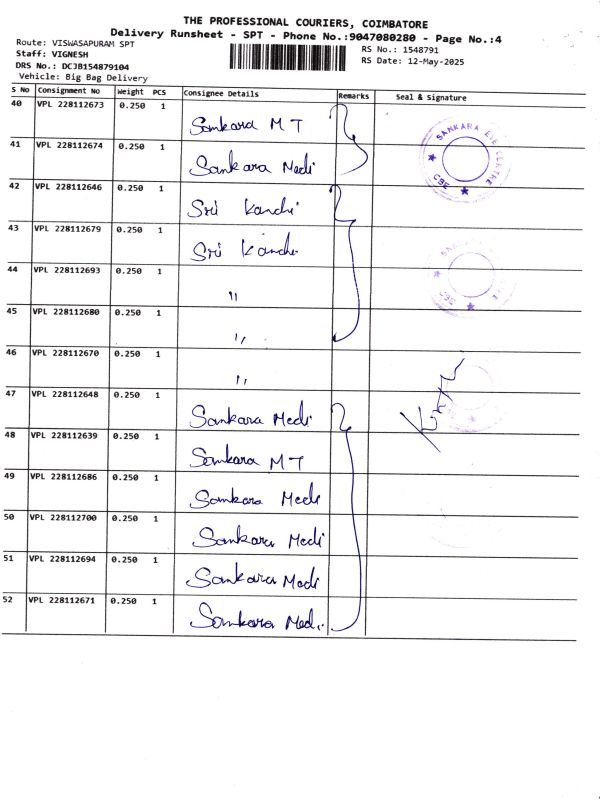 THE PROFESSIONAL COURIERS, COIMBATORE
Delivery Runsheet - SPT - Phone No.:9047080280 - Page No.:4
Route: VISWASAPURAM SPT
RS No.: 1548791
Staff: VIGNESH
RS Date: 12-May-2025
DRS No.: DCJB154879104
Vehicle: Big Bag Delivery
S No Consignment No Weight PCS Consignee Details Remarks Seal & Signature
40 VPL 228112673 0.250 1 Sankara M T
41 VPL 228112674 0.250 1 Sankara Medi
42 VPL 228112646 0.250 1 Sri Kanchi
43 VPL 228112679 0.250 1 Sri Kanchi
44 VPL 228112693 0.250 1 "
45 VPL 228112680 0.250 1 "
46 VPL 228112670 0.250 1 "
47 VPL 228112648 0.250 1 Sankara Medi
48 VPL 228112639 0.250 1 Sankara M T
49 VPL 228112686 0.250 1 Sankara Medi
50 VPL 228112700 0.250 1 Sankara Medi
51 VPL 228112694 0.250 1 Sankara Medi
52 VPL 228112671 0.250 1 Sankara Medi
SANKARA EYE CENTRE
CBE
SANKARA
CBE